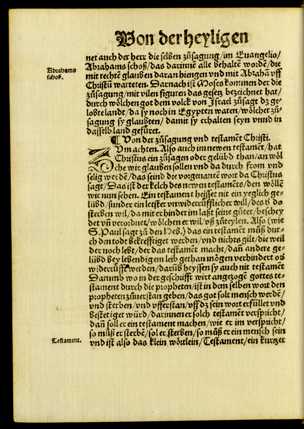 Von der heyligen
net auch der herr die selben zůsagung/im Euangelio/
Abrahams schoß/das darinne alle behaltẽ wordẽ/die
Abrahams
schos.
mit rechtẽ glauben daran hiengen vnd mit Abrahã vff
Christũ warteten. Darnach ist Moses kommen der die
zůsagung/mit vilen figuren das gesetz bezeichnet hat/
durch wölchen got dem volck von Israel zůsagt dz ge-
lobte land/da sy noch in Egypten waren/wölcher zů
sagung sy glaubten/damit sy erhalten seyn vnnd in
dasselb land gefüret.
Von der zůsagung vnd testamẽt Christi.
Zum achten. Also auch im newen testamẽt/hat
Christus ein zůsagen oder gelübd than/an wöl
che wir glauben sollen vnd da durch from vnd
selig werdẽ/das seind die vorgenantẽ wort da Christus
sagt/Das ist der kelch des newen testamẽtes/den wöllẽ
wir nun sehen. Ein testament heisset nit ein yeglich ge-
lübd/sunder ein letster vnwiderrüfflicher will/des d̕ da
sterben wil/da mit er hinder im laßt seine güter/bescheydet
vñ verordnet/wölchen er wil vß zůteylen. Also (wie
S. Paul sagt zů den) das ein testamẽt můß dur-
ch den todt bekrefftiget werden/vnd nichts gilt/die weil
der noch lebt/der das testamẽt macht/dañ andere ge-
lübd bey lebendigem leib gethan mögen verhindert od̕
widerrüfft werden/darũb heyssen sy auch nit testamẽt
Darumb wo in der geschrifft wirt angezogẽ gottes te-
stament durch die propheten/ist in dem selben wort den
propheten zůuerstan geben/das got solt mensch werdẽ/
vnd sterben/vnd vfferstan/vff dz sein wort erfüllet vnd
bestetiget würd/dariñen er solch testamẽt verspricht/
dañ soll er ein testament machen/wie er im verspricht/
so můß er sterbẽ/sol er sterben/so můß er ein mensch sein
Testament.
vnd ist also das klein wörtlein/Testament/ein kurtzer